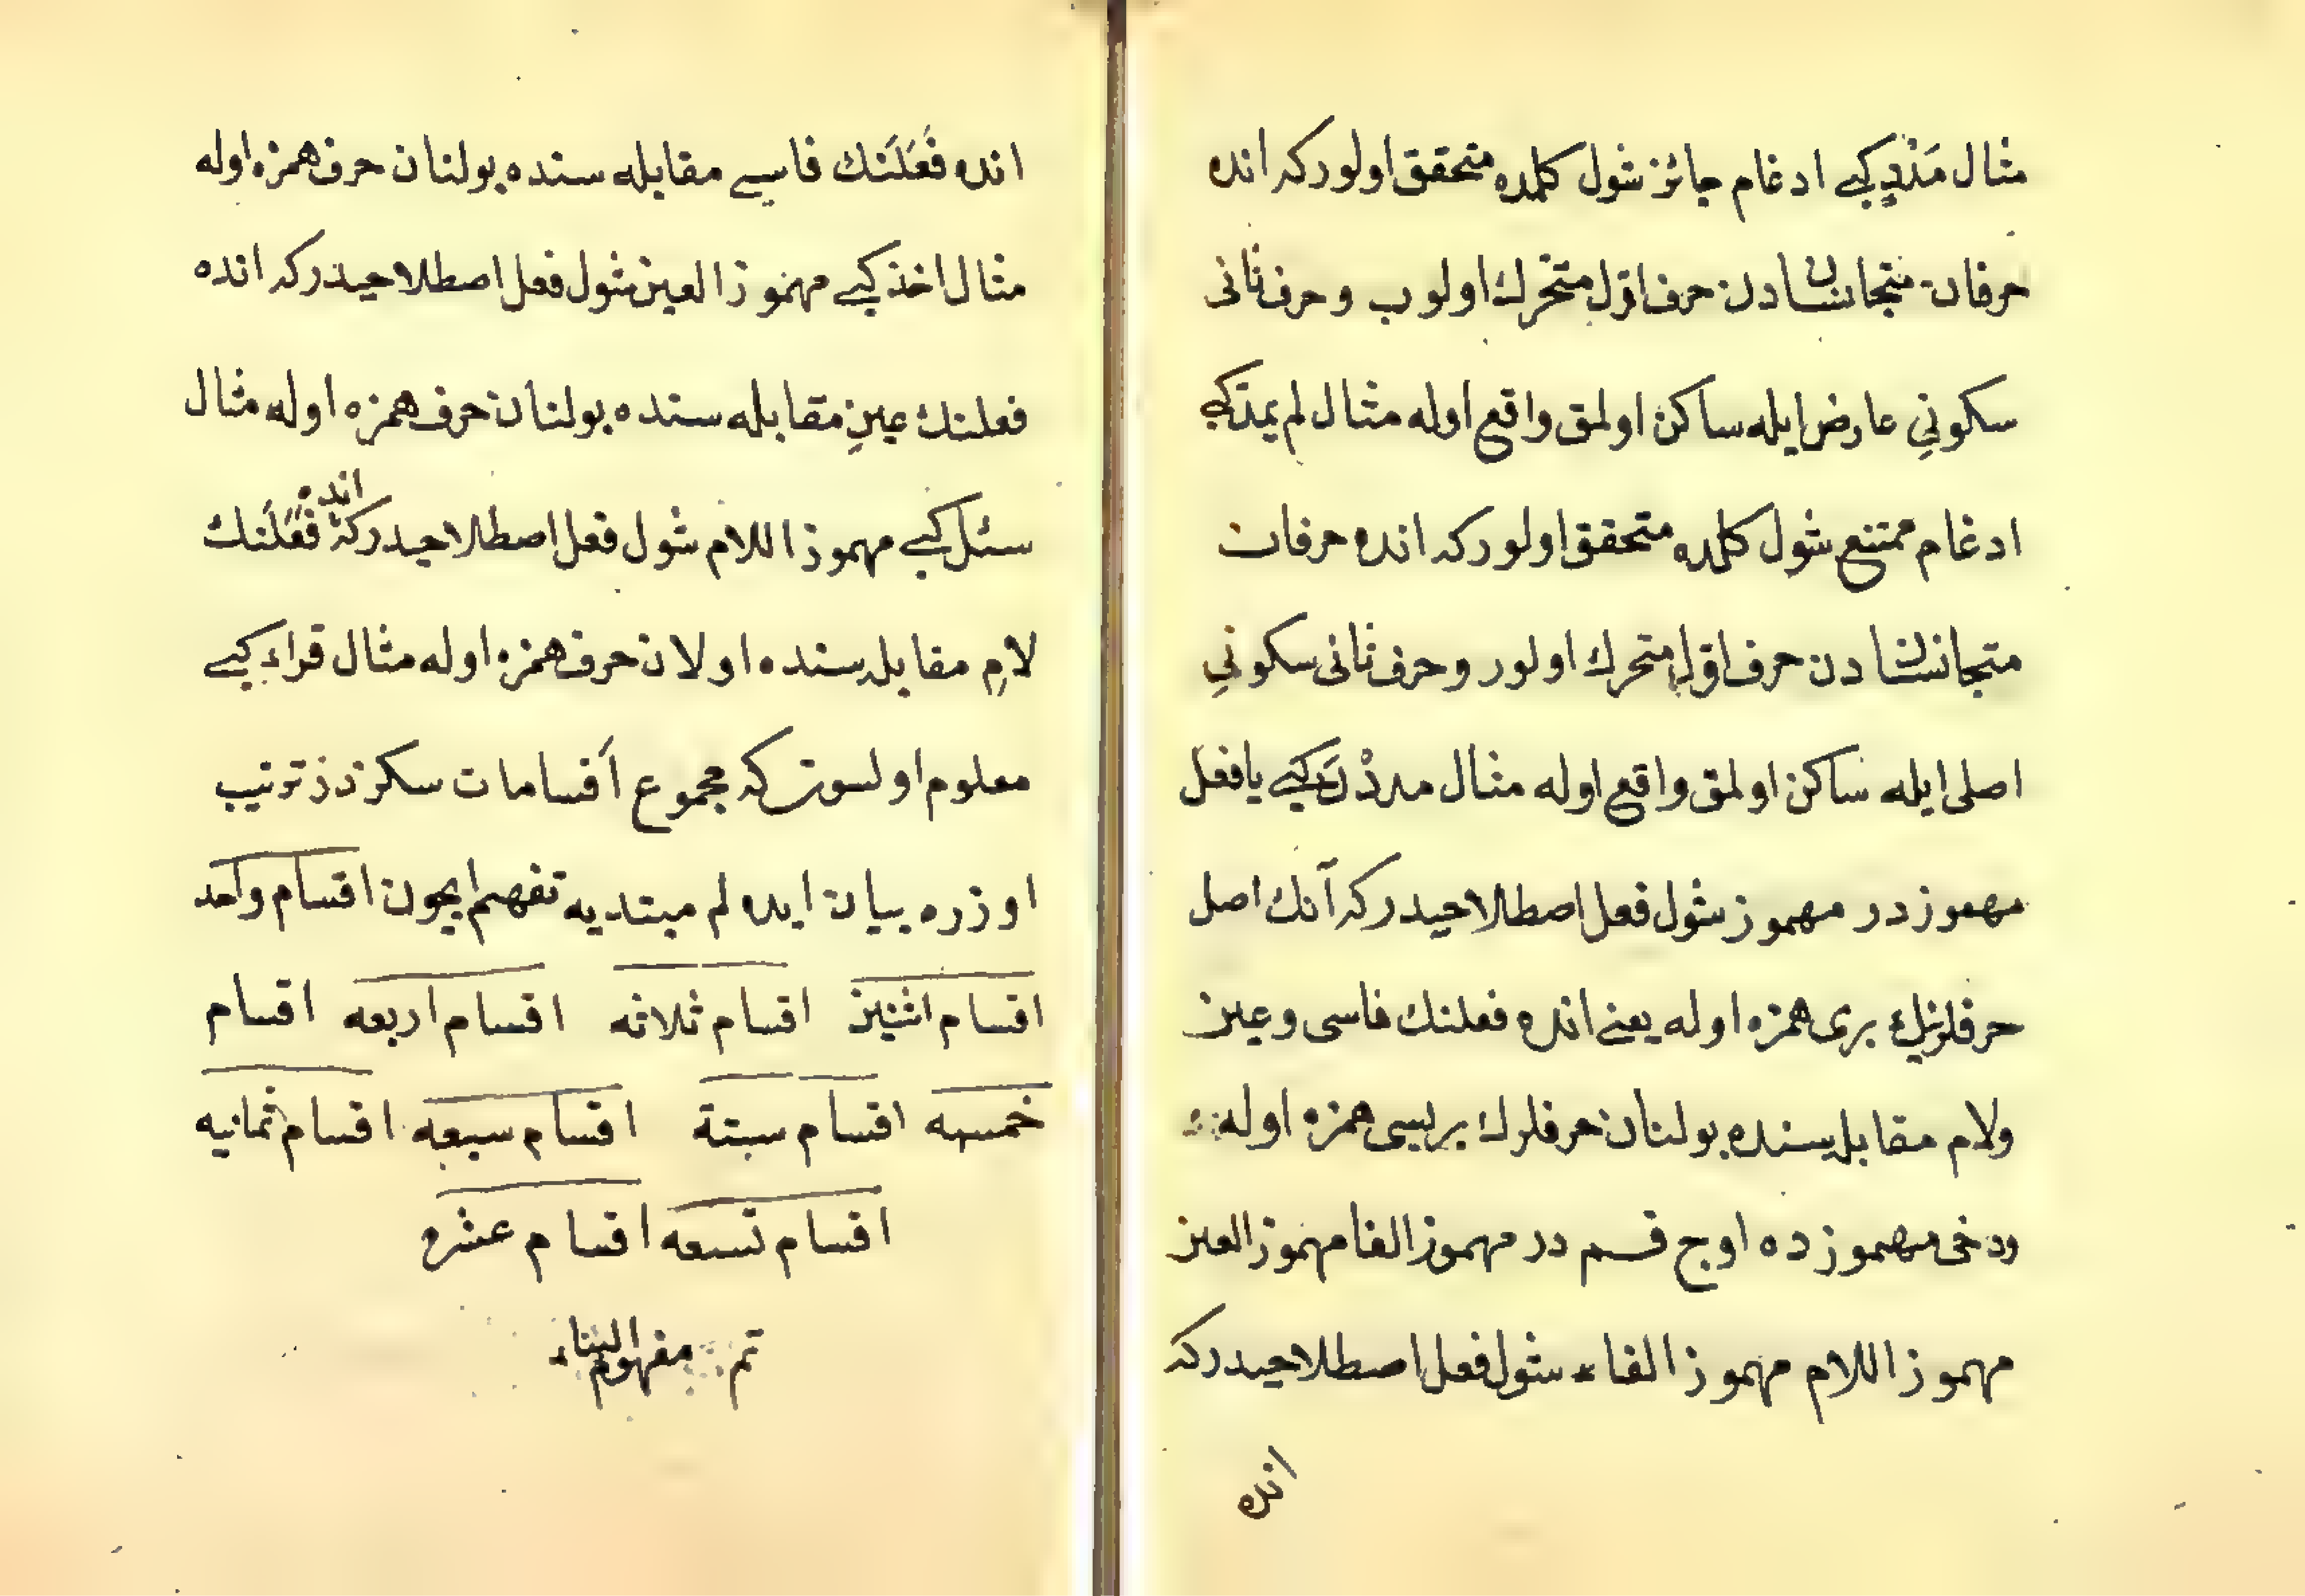 مثال مَدَّ كبى ادغام جائز شول كلمه ده متحقق اولور كه انده
حرفان متجانسان دن حرف اوّل متحرك اولوب و حرف ثانى
سكونِي عارض ايله ساكن اولمق واقع اوله مثال لم يمدّ كبى
ادغام ممتنع شول كلمه ده متحقق اولور كه انده حرفان
متجانسان دن حرف اوّل متحرك اولور و حرف ثانى سكونِي
اصلى ايله ساكن اولمق واقع اوله مثال مددْنَ كبى يا فعل
مهموز در مهموز شول فعل اصطلاحيدر كه آنك اصل
حرفلرينك برى همزه اوله يعنى انده فعلنك فاسى و عين
ولام مقابله سنده بولنان حرفلرك بريسى همزه اوله
ودخى مهموز ده اوج قسم در مهموز الفا مهموز العين
مهموز اللام مهموز الفاء شول فعل اصطلاحيدر كه
انده
انده فَعَلَنك فاسى مقابله سنده بولنان حرف همزه اوله
مثال اخذ كبى مهموز العين شول فعل اصطلاحيدر كه انده
فعلنك عينِ مقابله سنده بولنان حرف همزه اوله مثال
سئل كبى مهموز اللام شول فعل اصطلاحيدر كه انده فَعَلَنك
لامِ مقابله سنده اولان حرف همزه اوله مثال قراء كبى
معلوم اولسون كه مجموع اَقسامات سكزدز ترتيب
اوزره بيان ايده لم مبتديه تفهيم ايچون اقسام واحد
اقسام اثنين اقسام ثلاثه اقسام اربعه اقسام
خمسه اقسام ستة اقسام سبعه اقسام ثمانيه
اقسام تسعه اقسام عشره
تم مفهوم البناء